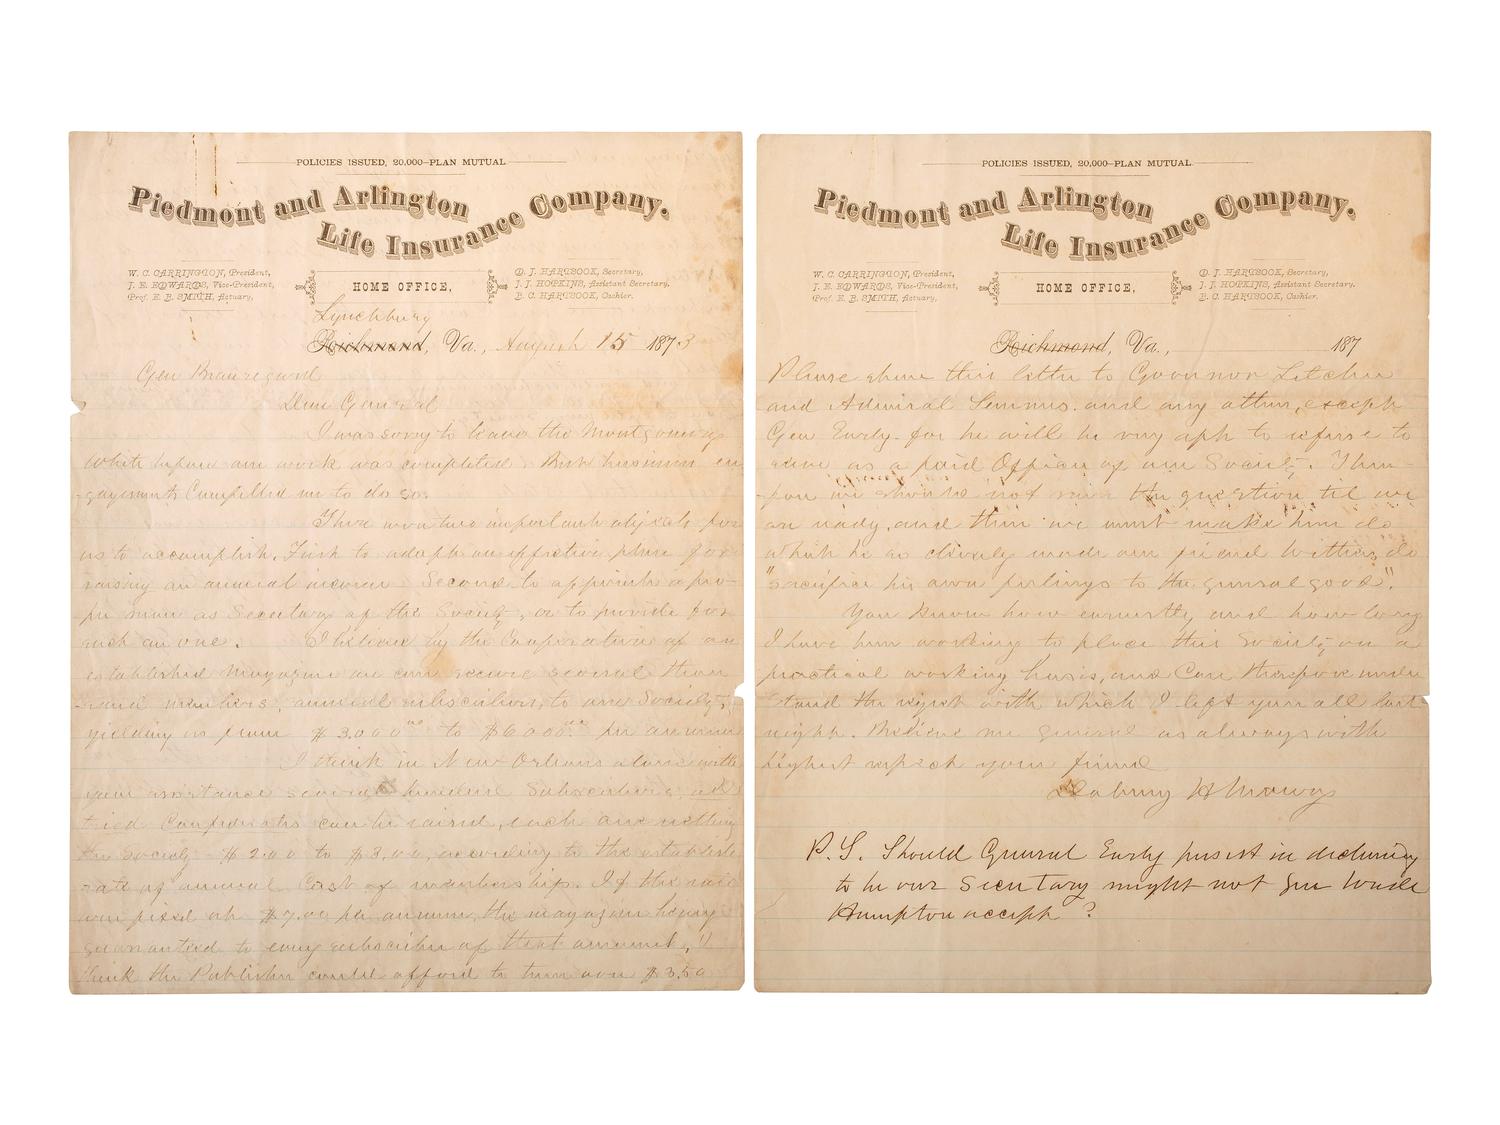 POLICIES ISSUED, 20,000–PLAN MUTUAL
Piedmont and Arlington
Life Insurance Company.
W. C. CARRINGTON, President,
J. E. EDWARDS, Vice-President,
Prof. E. B. SMITH, Actuary,
HOME OFFICE,
D. J. HARTSOOK, Secretary,
J. J. HOPKINS, Assistant Secretary,
B. C. HARTSOOK, Cashier.
Lynchburg
Richmond, Va., August 15 1873
Gen Beauregard
Dear General
I was sorry to leave the Montgomery
White before our work was completed. But business en
gagements Compelled me to do so.
There are two important objects for
us to accomplish. First to adopt an effective plan for
raising an annual income. Second to appoint a pro-
per man as Secretary of the Society, or to provide for
such an one. I believe by the Cooperation of an
established Magazine we can secure several thou
sand members, annual subscribers, to our Society,
yielding us from $3,000 to $6000 per annum
I think in New Orleans alone with
your assistance several hundred Subscribers
Confederates can be raised, each one netting
the Society $2.00 to $3.00, according to the establish
rate of annual Cost of membership. If the rate
were fixed at $7.00 per annum, the magazine being
guaranteed to every subscriber of that amount, I
think the Publisher could afford to turn over $3.50
POLICIES ISSUED, 20,000–PLAN MUTUAL
Piedmont and Arlington
Life Insurance Company.
W. C. CARRINGTON, President,
J. E. EDWARDS, Vice-President,
Prof. E. B. SMITH, Actuary,
HOME OFFICE,
D. J. HARTSOOK, Secretary,
J. J. HOPKINS, Assistant Secretary,
B. C. HARTSOOK, Cashier.
Richmond, Va., 187
Please show this letter to Governor Letcher
and Admiral Semmes. and any other, except
Gen Early. for he will be very apt to refuse to
serve as a paid Officer of our Society. There-
fore we should not raise the question til we
are ready, and then we must make him do
which he so cleverly made our friend Withers do
"sacrifice his own feelings to the general good".
You know how earnestly, and how long
I have been working to place this Society on a
practical working basis, and Can therefore under
stand the regret with which I left you all last
night. Believe me general as always with
highest respect your friend
Dabney H Maury
P.S. Should General Early persist in declining
to be our Secretary might not Gen Wade
Hampton accept?